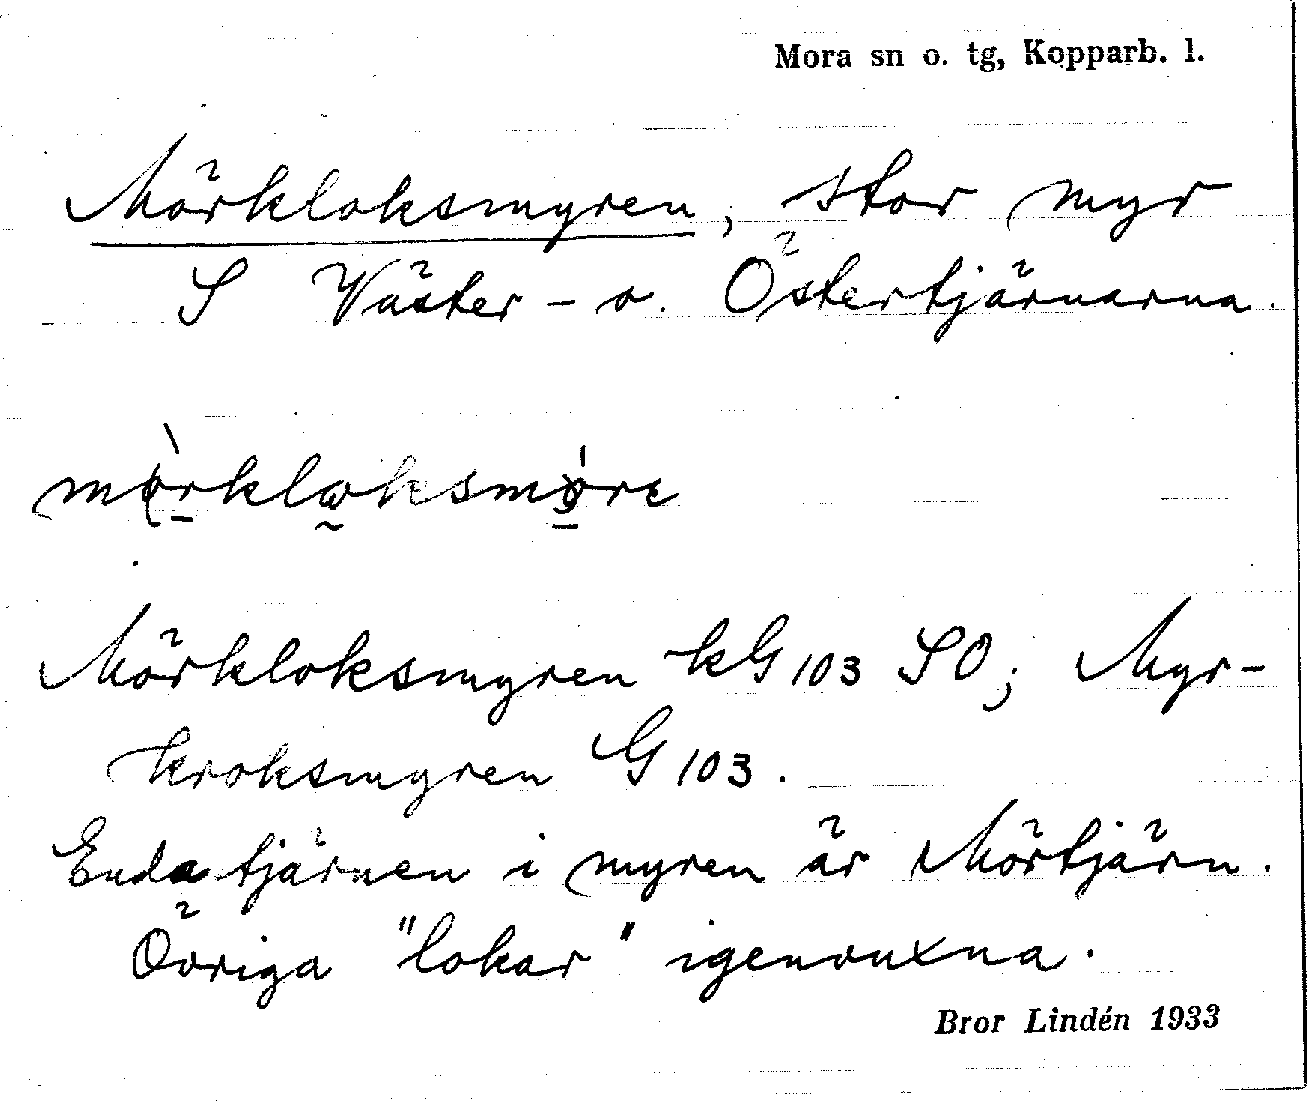 Mora sn o. tg, Kopparb. l.
Mörkloksmyren, stor myr
S Väster- o. Östertjärnarna.
Mörkloksmyren kG 103 SO; Myr-
kroksmyren G 103.
Enda tjärnen i myren är Mörtjärn.
Övriga "lokar" igenvuxna.
Bror Lindén 1933